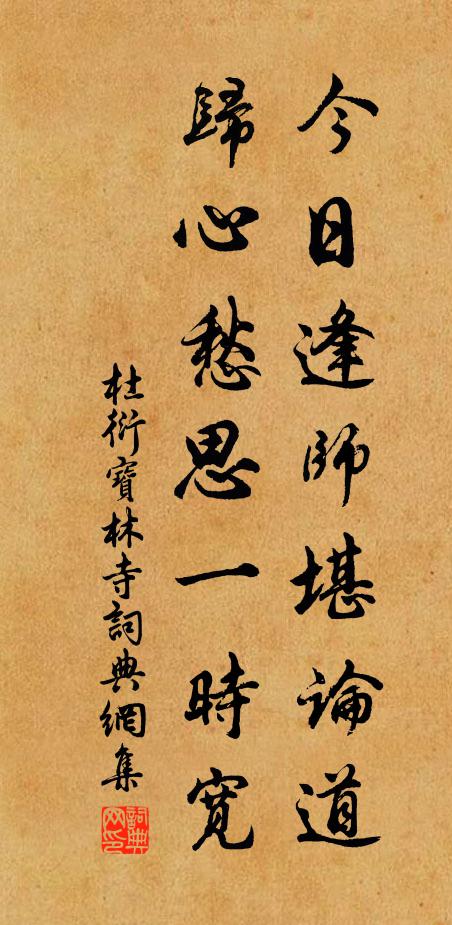 今日逢師堪論道
歸心愁思一時寬
杜衍寶林寺詞典網集
詞典网印